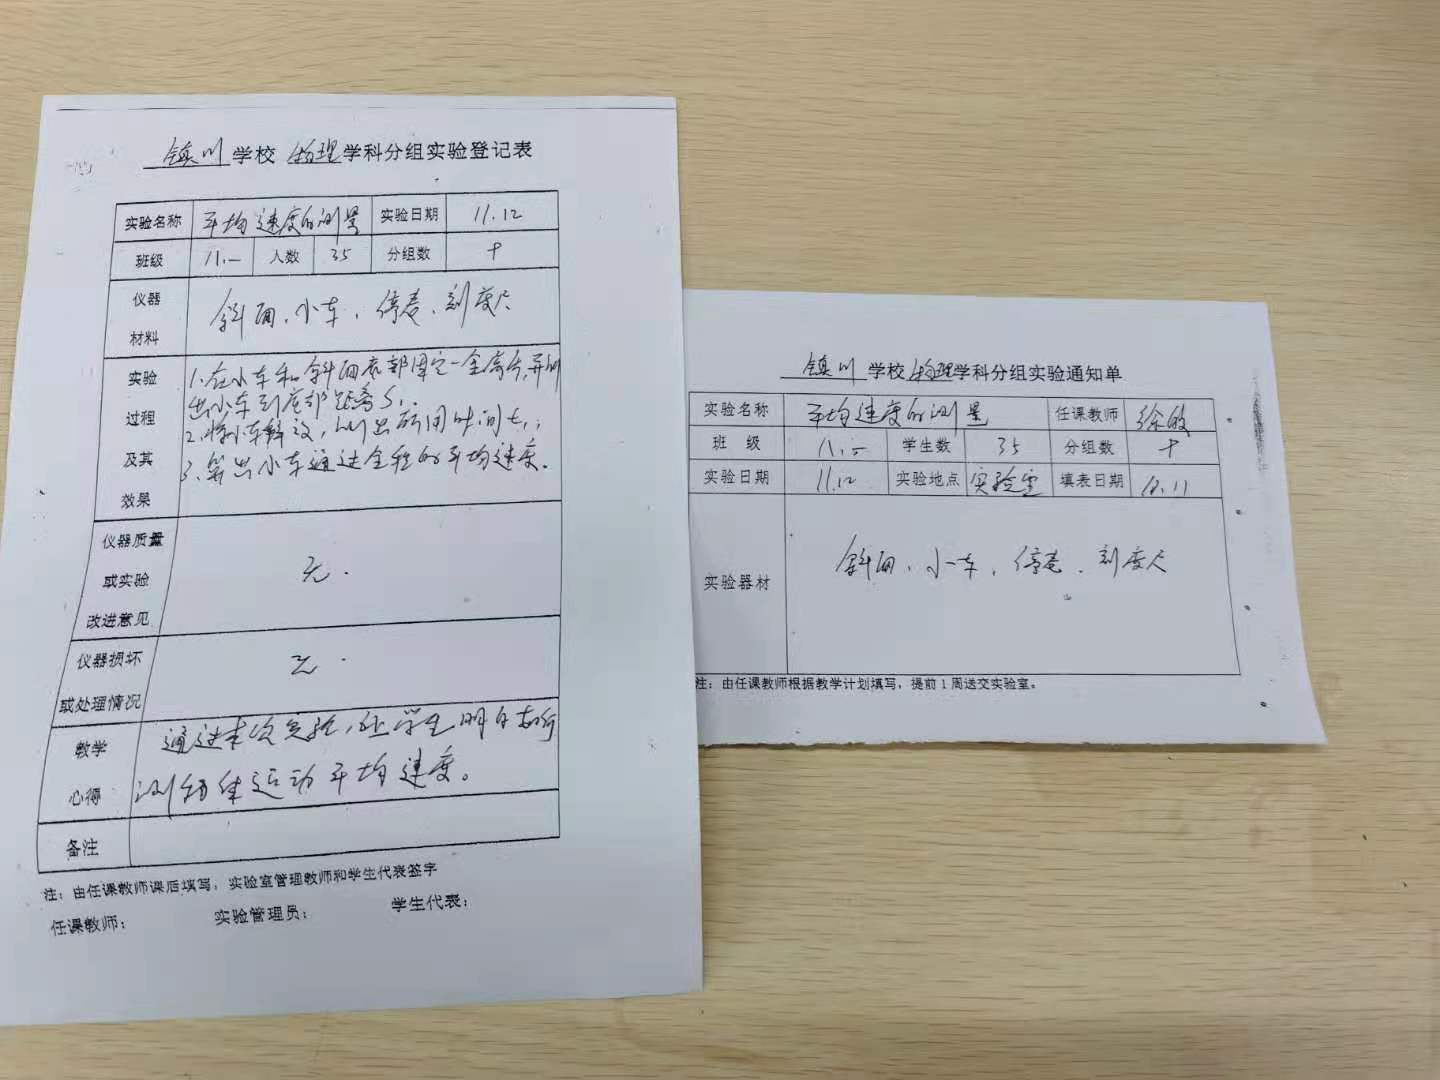 镇川学校 物理学科分组实验登记表
实验名称 平均速度的测量 实验日期 11.12
班级 八.一 人数 35 分组数 十
仪器材料 斜面、小车、停表、刻度尺
实验过程及其效果
1.在小车和斜面底部固定一金属片,并测
出小车到底部距离S,
2.将小车释放,测出所用时间t,;
3.算出小车通过全程的平均速度.
仪器质量或实验改进意见 无.
仪器损坏或处理情况 无.
教学心得 通过本次实验,让学生明白如何
测物体运动平均速度。
备注
注:由任课教师课后填写;实验室管理教师和学生代表签字
任课教师: 实验管理员: 学生代表:
镇川学校物理学科分组实验通知单
实验名称 平均速度的测量 任课教师
班 级 八.一 学生数 35 分组数 十
实验日期 11.12 实验地点 实验室 填表日期
实验器材 斜面、小车、停表、刻度尺
注:由任课教师根据教学计划填写,提前1周送交实验室。